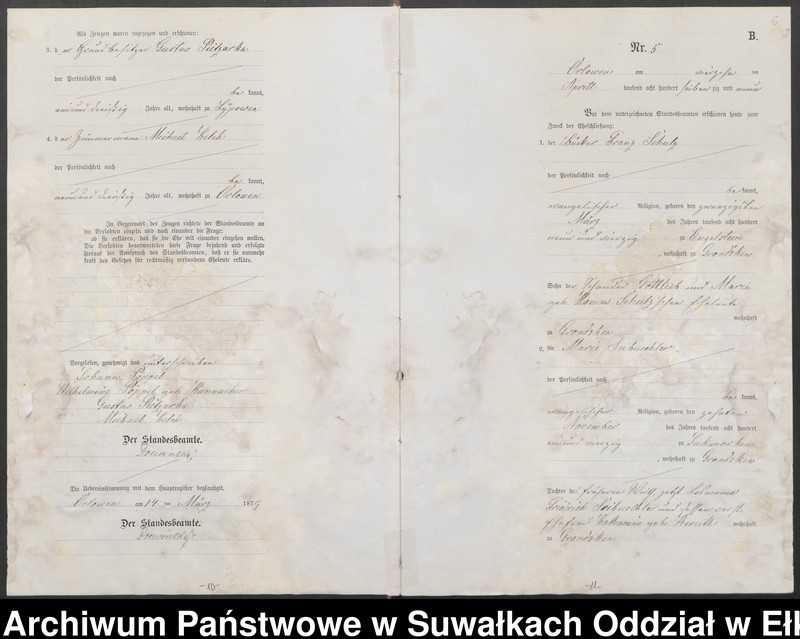 Als Zeugen waren zugezogen und erschienen:
3. der Grundbesitzer Gustav Pietzarka
der Persönlichkeit nach
be kannt,
ein und dreißig Jahre alt, wohnhaft zu Lypowen
4. der Zimmermann Michael
der Persönlichkeit nach
be kannt,
neun und dreißig Jahre alt, wohnhaft zu Orlowen
In Gegenwart der Zeugen richtete der Standesbeamte an
die Verlobten einzeln und nach einander die Frage:
ob sie erklären, daß sie die Ehe mit einander eingehen wollen.
Die Verlobten beantworteten diese Frage bejahend und erfolgte
hierauf der Ausspruch des Standesbeamten, daß er sie nunmehr
kraft des Gesetzes für rechtmäßig verbundene Eheleute erkläre.
Vorgelesen, genehmigt und unterschrieben
Johann
Wilhelmine geb.
Gustav Pietzarka
Michael
Der Standesbeamte.
Die Uebereinstimmung mit dem Hauptregister beglaubigt.
Orlowen am 14. ten März 1879
Der Standesbeamte.
—10—
6
B.
Nr. 5
Orlowen am vierzehn ten
April tausend acht hundert sieben zig und neun
Vor dem unterzeichneten Standesbeamten erschienen heute zum
Zweck der Eheschließung:
1. der Bäcker Franz Schulz
der Persönlichkeit nach
be kannt,
evangelischer Religion, geboren den zwanzigsten
März des Jahres tausend acht hundert
neun und vierzig zu Engelstein
, wohnhaft zu Grondzken
Sohn der Gottlieb und Marie
geb. Schulz'schen Eheleute
wohnhaft
zu Grondzken
2. die Marie
der Persönlichkeit nach
be kannt,
evangelischer Religion, geboren den zehnten
November des Jahres tausend acht hundert
ein und vierzig zu
, wohnhaft zu Grondzken
Tochter des früheren Wirth, jetzt
Friedrich und dessen verst.
Ehefrau Catharina geb. wohnhaft
zu Grondzken
—11—
Archiwum Państwowe w Suwałkach Oddział w Eł